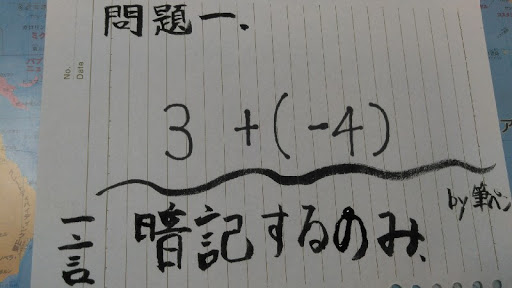 問題一、
No.
Date
3 + (-4)
by 筆ペン
一言 暗記するのみ、
ア